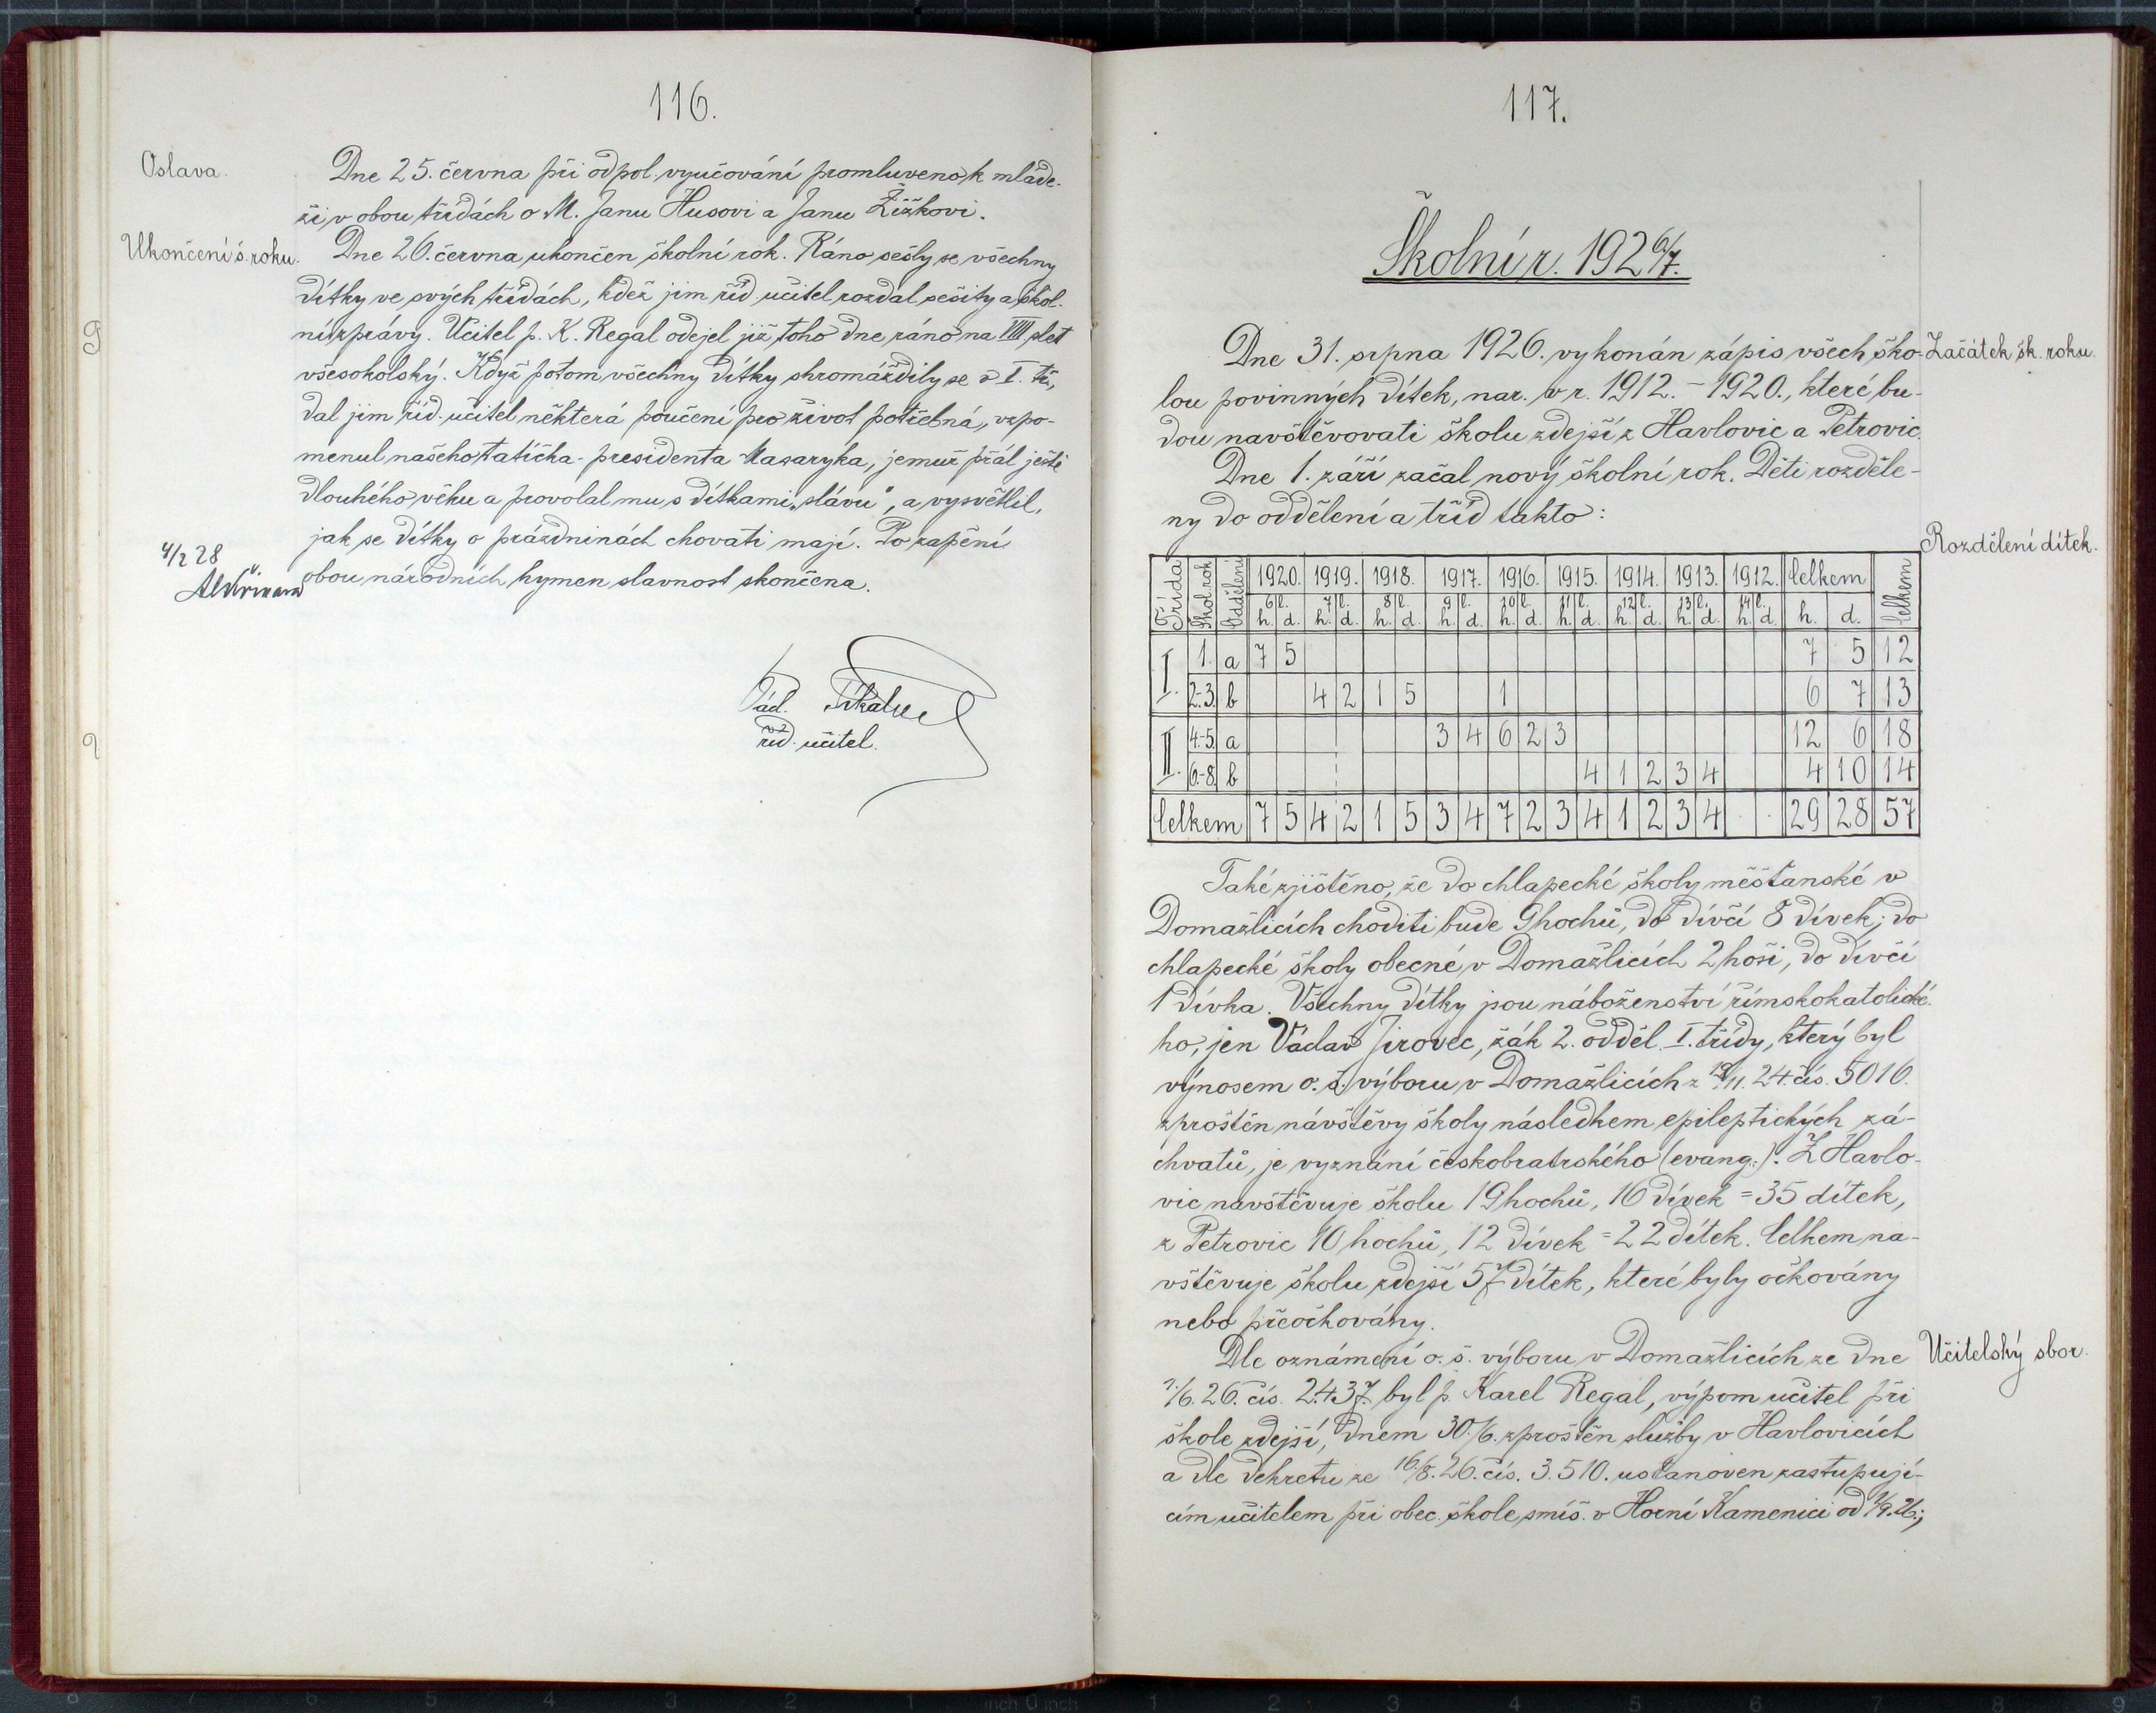 116.
Oslava.
Dne 25. června při odpol. vyučování promluveno k mláde-
ži v obou třídách o M. Janu Husovi a Janu Žižkovi.
Ukončení š. roku.
Dne 26. června ukončen školní rok. Ráno sešly se všechny
dítky ve svých třídách, kdež jim říd. učitel rozdal sešity a škol-
ní zprávy. Učitel p. K. Regal odejel již toho dne ráno na VIII slet
všesokolský. Když potom všechny dítky shromáždily se v I. tř.,
dal jim říd. učitel některá poučení pro život potřebná, vzpo-
menul našeho tatíčka - presidenta Masaryka, jemuž přál ještě
dlouhého věku a provolal mu s dítkami „slávu“, a vysvětlil,
jak se dítky o prázdninách chovati mají. Po zapění
obou národních hymen slavnost skončena.
4/2 28
říd. učitel.
117.
Školní r. 1926/7.
Začátek šk. roku.
Dne 31. srpna 1926. vykonán zápis všech ško-
lou povinných dítek, nar. v r. 1912. - 1920., které bu-
dou navštěvovati školu zdejší z Havlovic a Petrovic.
Dne 1. září začal nový školní rok. Děti rozděle-
ny do oddělení a tříd takto:
Rozdělení dítek.
Třída Škol. rok Oddělení 1920. 1919. 1918. 1917. 1916. 1915. 1914. 1913. 1912. Celkem Celkem
6 l. 7 l. 8 l. 9 l. 10 l. 11 l. 12 l. 13 l. 14 l.
h. d. h. d. h. d. h. d. h. d. h. d. h. d. h. d. h. d. h. d.
I. 1. a 7 5 7 5 12
2.-3. b 4 2 1 5 1 6 7 13
II. 4.-5. a 3 4 6 2 3 12 6 18
6.-8. b 4 1 2 3 4 4 10 14
Celkem 7 5 4 2 1 5 3 4 7 2 3 4 1 2 3 4 . . 29 28 57
Také zjištěno, že do chlapecké školy měšťanské v
Domažlicích choditi bude 9 hochů, do dívčí 8 dívek; do
chlapecké školy obecné v Domažlicích 2 hoši, do dívčí
1 dívka. Všechny dítky jsou náboženství římskokatolické-
ho, jen Václav Jirovec, žák 2. odděl. I. třídy, který byl
výnosem o. š. výboru v Domažlicích z 11. 24. čís. 5016.
zproštěn návštěvy školy následkem epileptických zá-
chvatů, je vyznání českobratrského (evang.). Z Havlo-
vic navštěvuje školu 19 hochů, 16 dívek = 35 dítek,
z Petrovic 10 hochů, 12 dívek = 22 dítek. Celkem na-
vštěvuje školu zdejší 57 dítek, které byly očkovány
nebo přeočkovány.
Učitelský sbor.
Dle oznámení o. š. výboru v Domažlicích ze dne
/6. 26. čís. 2.437. byl p. Karel Regal, výpom. učitel při
škole zdejší, dnem 30./6. zproštěn služby v Havlovicích
a dle dekretu ze 16./8. 26. čís. 3.510. ustanoven zastupují-
cím učitelem při obec. škole smíš. v Horní Kamenici od 1/9. 26.;